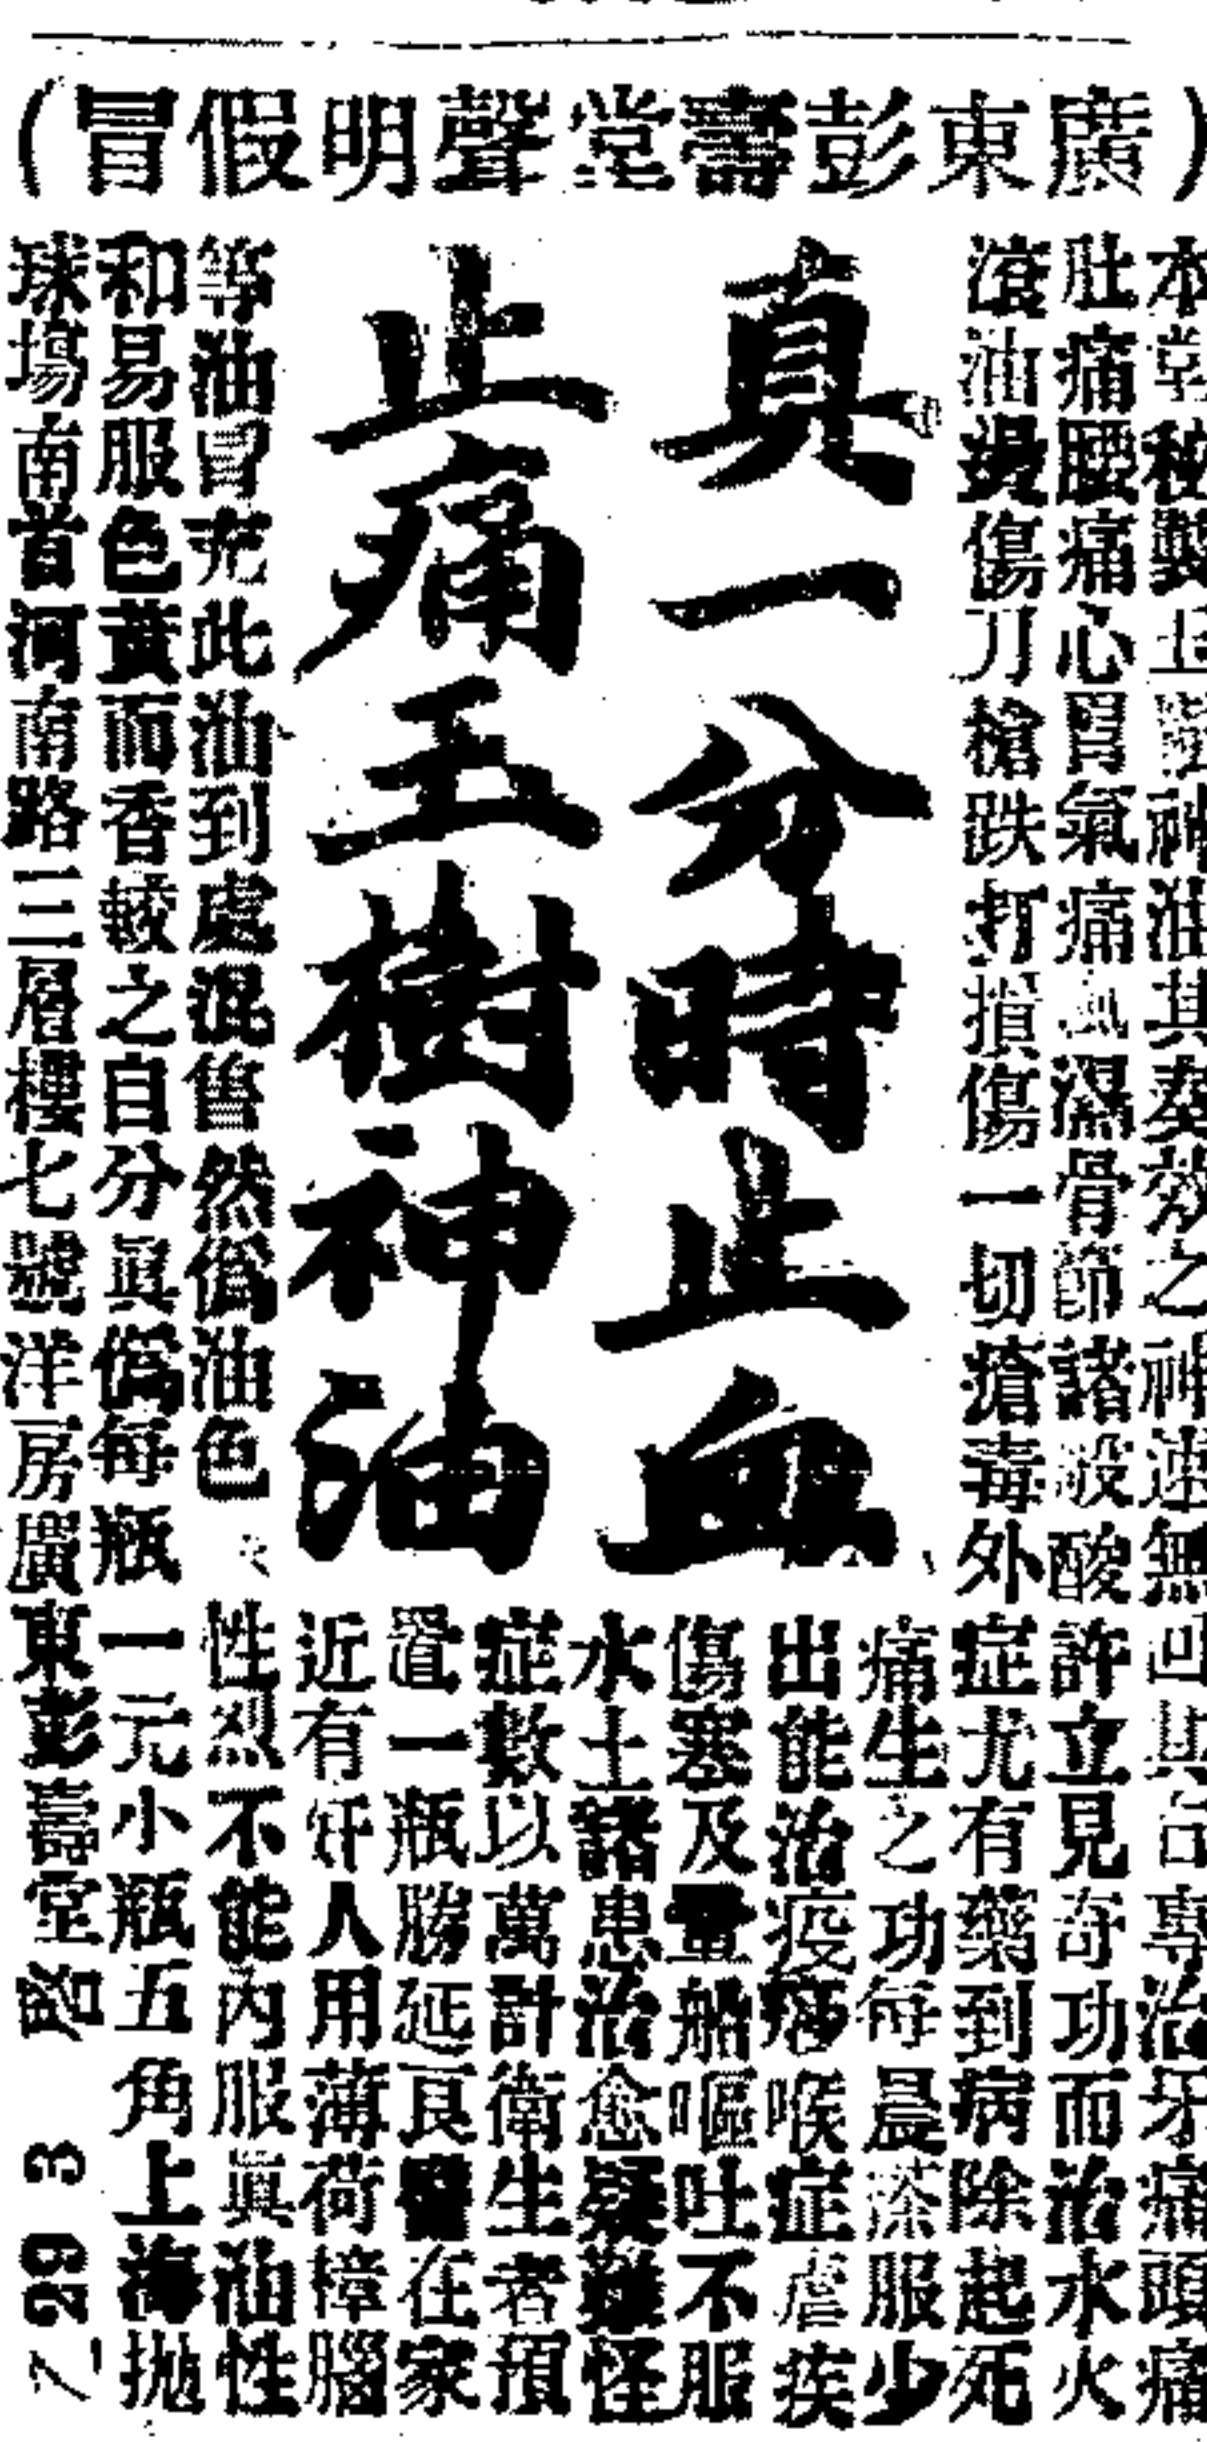 （廣東彭壽堂聲明假冒）
本堂秘製玉樹神油其奏效之神速無可其右專治牙痛頭痛
肚痛腰痛心胃氣痛風濕骨節諸般酸許立見奇功而治水火
滾油燙傷刀槍跌打損傷一切瘡毒外症尤有藥到病除起死
真一分時止血
止痛玉樹神油
痛生之功每晨茶服少
出能治疫痧喉症瘧疾
傷寒及暈船嘔吐不服
水土諸患治愈疑難怪
症數以萬計衛生者預
置一瓶勝延良醫在家
近有奸人用薄荷樟腦
等油冒充此油到處混售然僞油色性烈不能內服眞油性
和易服色黃而香較之自分眞僞每瓶一元小瓶五角上海拋
球場南首河南路三層樓七號洋房廣東彭壽堂啓
3
29
7